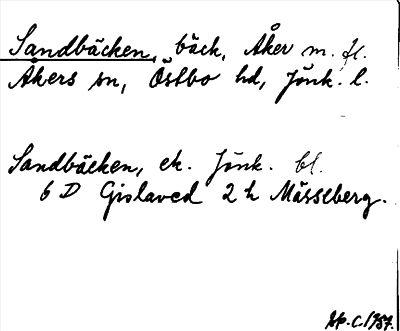 Sandbäcken, bäck, Åker m. fl.
Åkers sn, Östbo hd, Jönk. l.
Sandbäcken, ek. Jönk. bl.
6 D Gislaved 2 h Mässeberg.
1957.